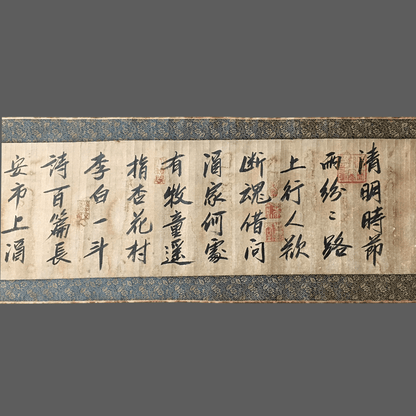 清明時節
雨紛〻路
上行人欲
断魂借问
酒家何處
有牧童遥
指杏花村
李白一斗
詩百篇長
安市上酒